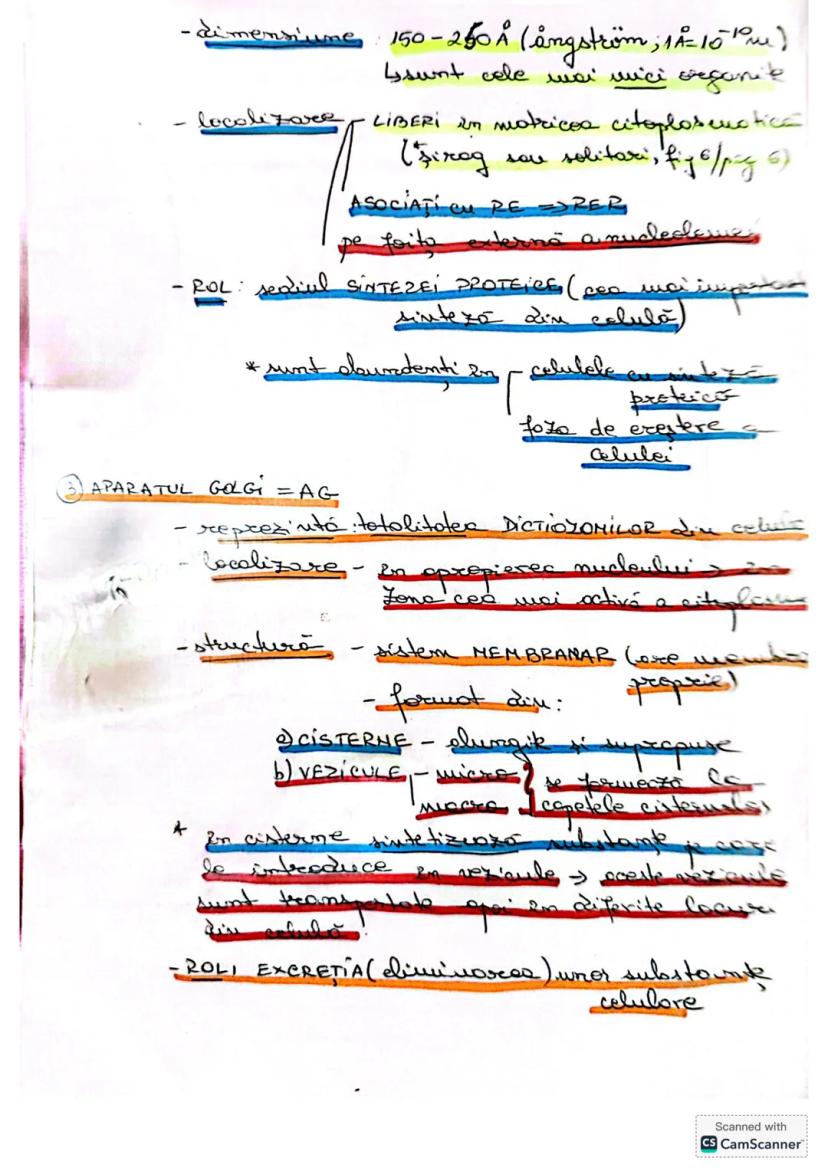 - dimensiune : 150-250 Å (ångström; 1Å=10⁻¹⁰m)
↳ sunt cele mai mici organite
- localizare - LIBERI în matricea citoplasmatică
(*șirag sau solitari, fig 6/pag 6)
ASOCIAȚI cu RE => RER
pe foița externă a nucleolemei
- ROL: sediul SINTEZEI PROTEICE (cea mai important
sinteză din celulă)
* sunt abundenți în celulele cu sinteză
proteică
faza de creștere a
celulei
③ APARATUL GOLGI = AG
- reprezintă: totalitatea DICTIOZOMILOR din celulă
- localizare - în apropierea nucleului →
zona cea mai activă a citoplasm
- structură - sistem MEMBRANAR (are membr
proprie)
- format din:
a) CISTERNE - alungite și suprapuse
b) VEZICULE - micro } se formează la
macro } capetele cisternelor
* în cisterne sintetizează substanțe pe care
le introduce în vezicule → aceste vezicule
sunt transportate apoi în diferite locuri
din celulă!
- ROL: EXCREȚIA (eliminarea) unor substanțe
celulare
Scanned with
CS CamScanner